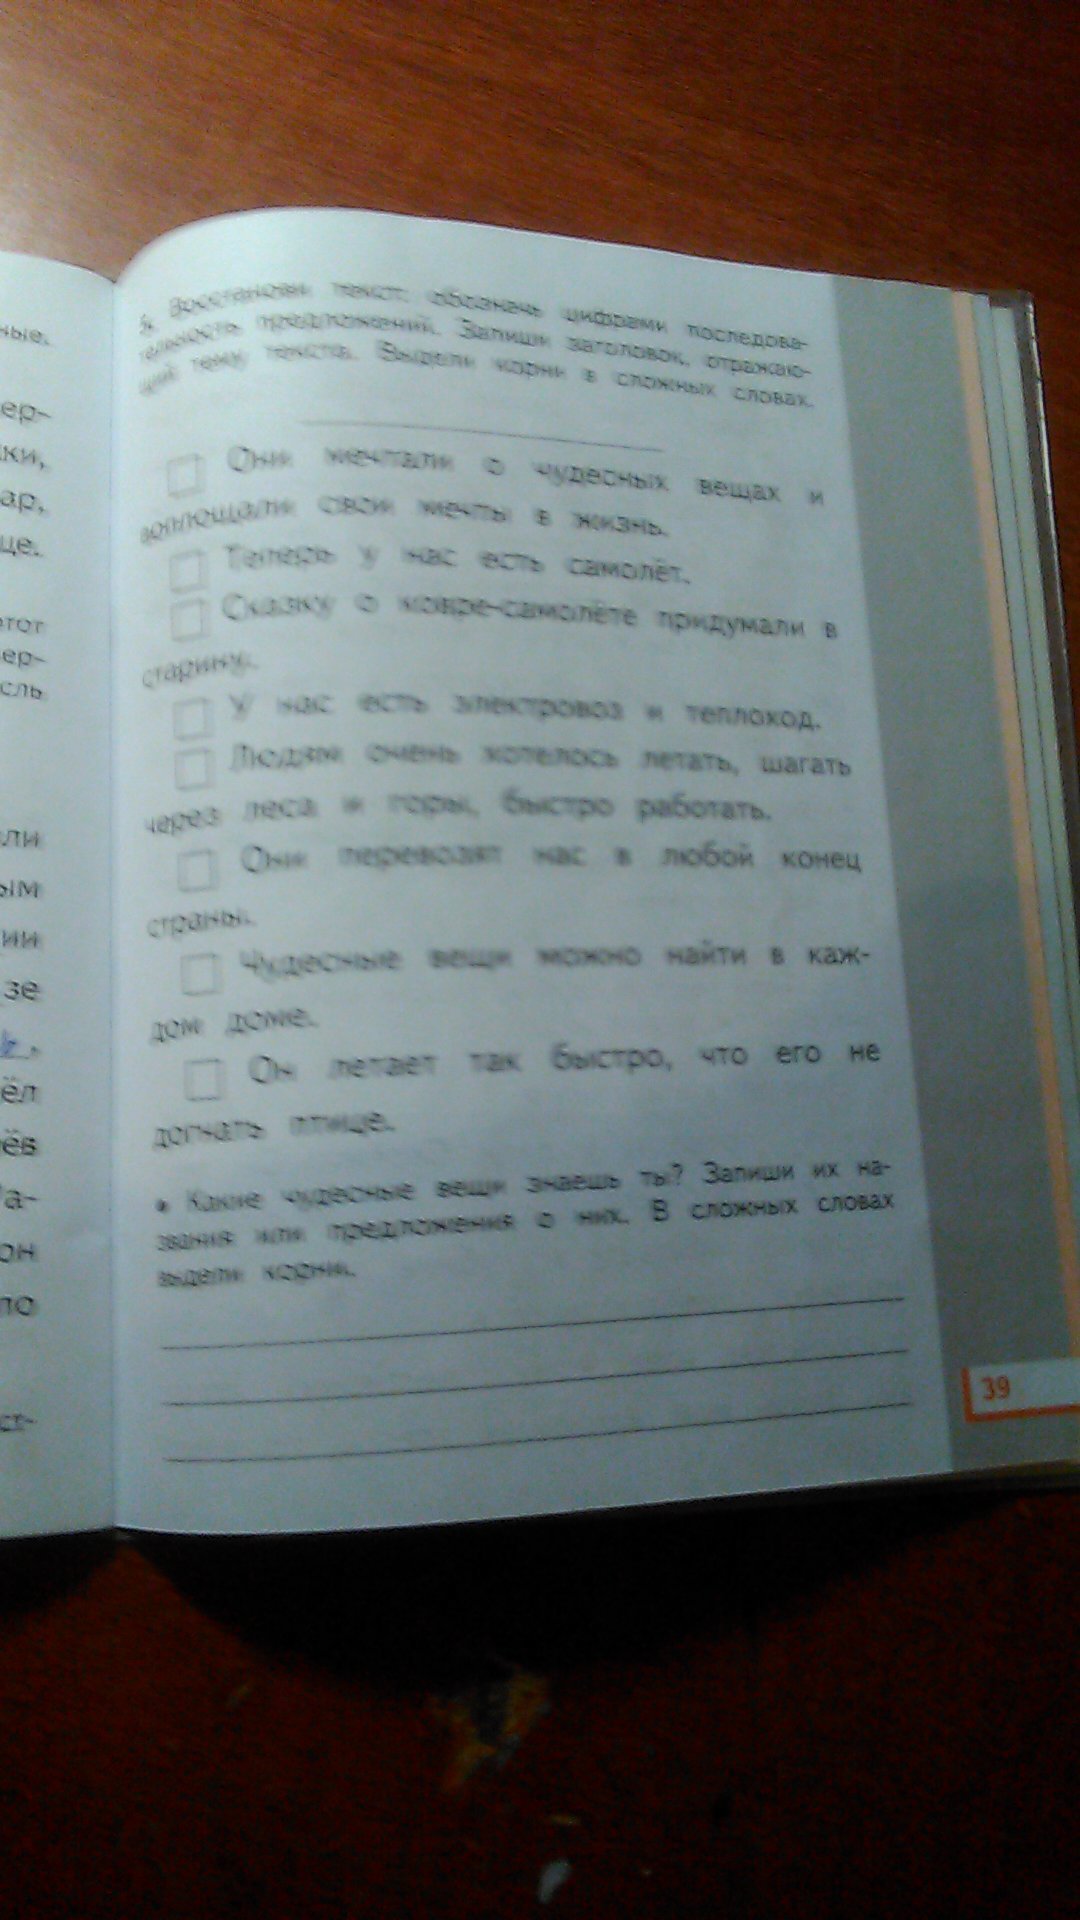 ные.
ер-
ки,
ар,
це.
этот
ер-
сль
ли
ым
ии
зе
ёл
ёв
Ра-
он
ло
ст-
5. Восстанови текст: обозначь цифрами последова-
тельность предложений. Запиши заголовок, отражаю-
щий тему текста. Выдели корни в сложных словах.
Они мечтали о чудесных вещах и
воплощали свои мечты в жизнь.
Теперь у нас есть самолёт.
Сказку о ковре-самолёте придумали в
старину.
У нас есть электровоз и теплоход.
Людям очень хотелось летать, шагать
через леса и горы, быстро работать.
Они перевозят нас в любой конец
страны.
Чудесные вещи можно найти в каж-
дом доме.
Он летает так быстро, что его не
догнать птице.
• Какие чудесные вещи знаешь ты? Запиши их на-
звания или предложения о них. В сложных словах
выдели корни.
39